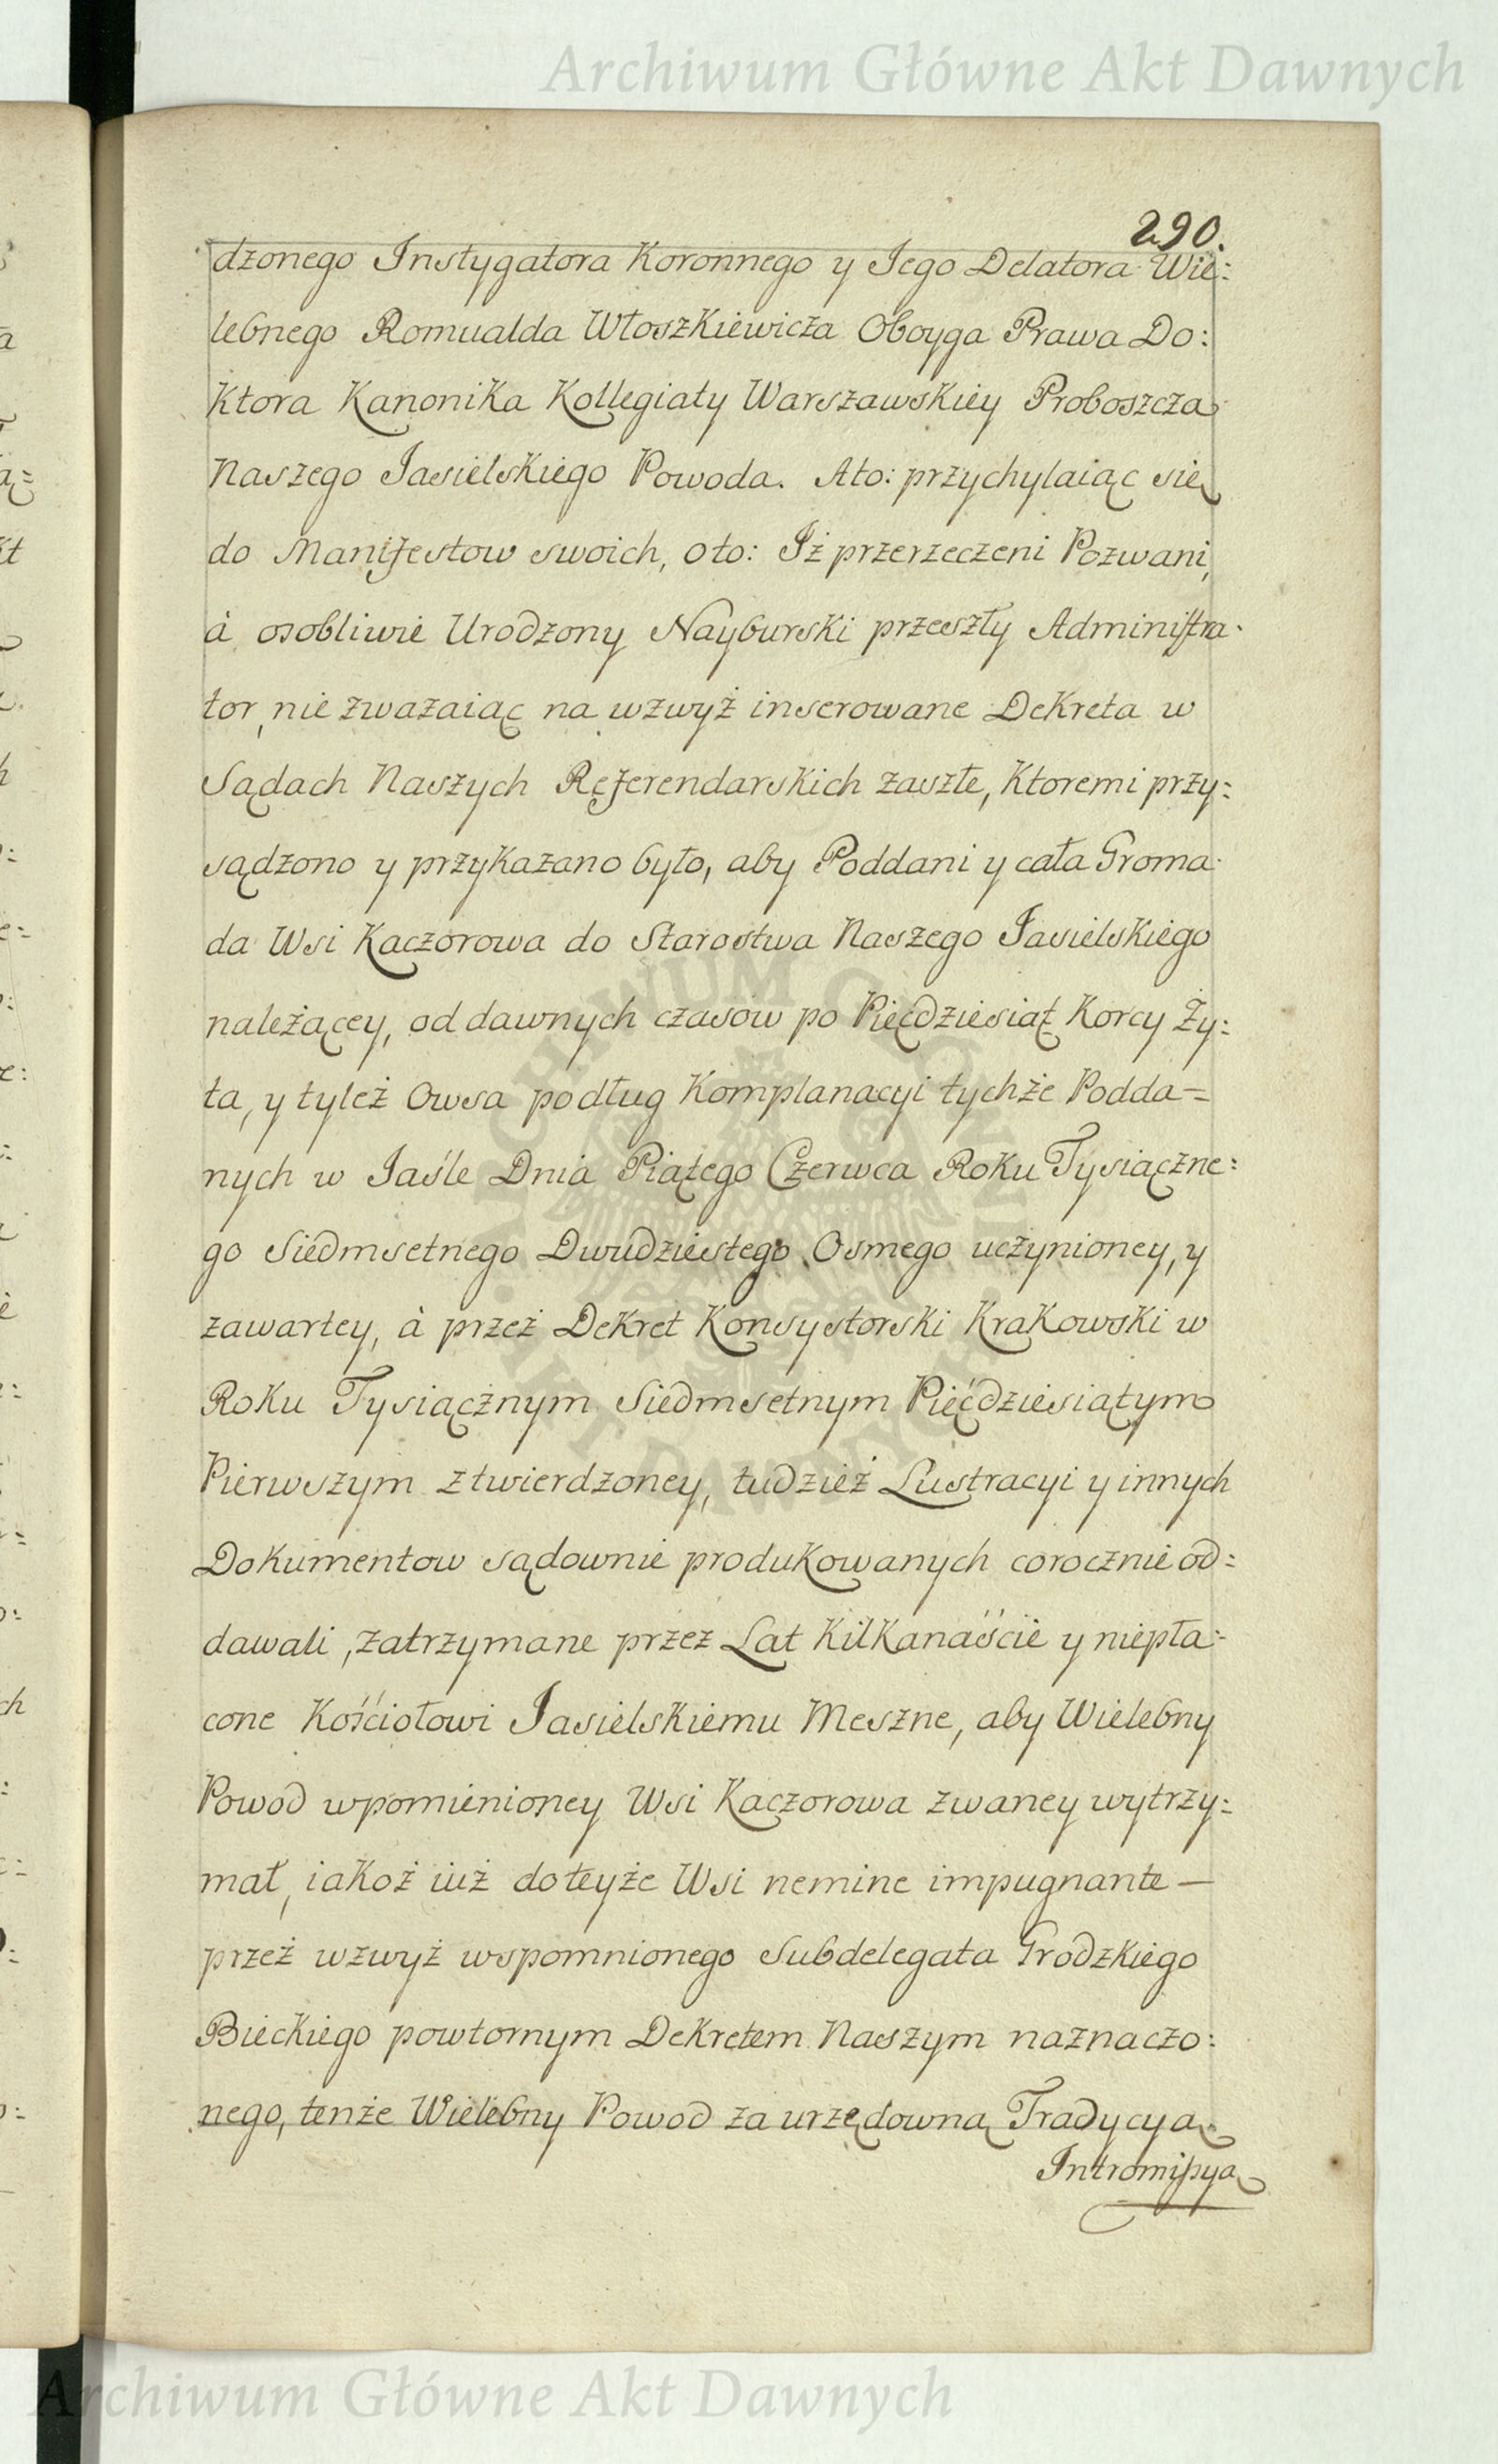 Archiwum Główne Akt Dawnych
290.
dzonego Instygatora Koronnego y Jego Delatora Wie:
lebnego Romualda Włoszkiewicza Oboyga Prawa Do:
ktora Kanonika Kollegiaty Warszawskiey Proboszcza
Naszego Jasielskiego Powoda. Ato: przychylaiąc się
do Manifestow swoich, oto: Iż przerzeczeni Pozwani,
à osobliwie Urodzony Nayburski przeszły Administra-
tor, nie zważaiąc na wzwyż inserowane Dekreta w
Sądach Naszych Referendarskich zaszłe, ktoremi przy:
sądzono y przykazano było, aby Poddani y cała Groma-
da Wsi Kaczorowa do Starostwa Naszego Jasielskiego
należącey, od dawnych czasow po Pięćdziesiąt Korcy Ży:
ta, y tyleż Owsa podług Komplanacyi tychże Podda=
nych w Jaśle Dnia Piątego Czerwca Roku Tysiączne:
go Siedmsetnego Dwudziestego Osmego uczynioney, y
zawartey, à przez Dekret Konsystorski Krakowski w
Roku Tysiącznym Siedmsetnym Pięćdziesiątym
Pierwszym ztwierdzoney, tudzież Lustracyi y innych
Dokumentow sądownie produkowanych corocznie od:
dawali, zatrzymane przez Lat Kilkanaście y niepła-
cone Kościołowi Jasielskiemu Meszne, aby Wielebny
Powod wpomienioney Wsi Kaczorowa zwaney wytrzy:
mał, iakoż iuż do teyże Wsi nemine impugnante —
przez wzwyż wspomnionego Subdelegata Grodzkiego
Bieckiego powtornym Dekretem Naszym naznaczo:
nego, tenże Wielebny Powod za urzędowną Tradycyą
Intromissyą
ARCHIWUM GŁÓWNE AKT DAWNYCH
Archiwum Główne Akt Dawnych